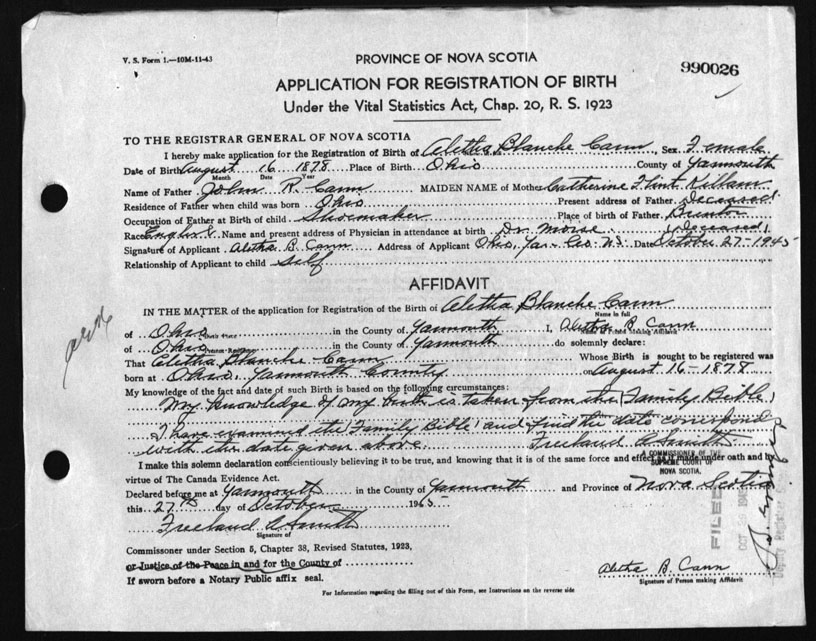 V. S. Form 1.—10M-11-43
PROVINCE OF NOVA SCOTIA
990026
APPLICATION FOR REGISTRATION OF BIRTH
Under the Vital Statistics Act, Chap. 20, R. S. 1923
TO THE REGISTRAR GENERAL OF NOVA SCOTIA
I hereby make application for the Registration of Birth of Aletha Blanche Cann, Sex Female
Date of Birth August 16 1878 Place of Birth Ohio County of Yarmouth
Month Date Year
Name of Father John R. Cann MAIDEN NAME of Mother Catherine Flint Killam
Residence of Father when child was born Ohio Present address of Father Deceased
Occupation of Father at Birth of child Shoemaker Place of birth of Father
Race English Name and present address of Physician in attendance at birth Dr Morse (Deceased)
Signature of Applicant Aletha B. Cann Address of Applicant Ohio, Yar. Co. N.S. Date October 27-1945
Relationship of Applicant to child Self
AFFIDAVIT
IN THE MATTER of the application for Registration of the Birth of Aletha Blanche Cann
Name in full
of Ohio in the County of Yarmouth I, Aletha B. Cann
of Ohio in the County of Yarmouth do solemnly declare:
That Aletha Blanche Cann Whose Birth is sought to be registered was
born at Ohio, Yarmouth County on August 16-1878
My knowledge of the fact and date of such Birth is based on the following circumstances:
My knowledge of my birth is taken from the (Family Bible)
I have examined the (Family Bible) and find the date correspond
with the date given above. Freeland
A COMMISSIONER OF THE
SUPREME COURT OF
NOVA SCOTIA
I make this solemn declaration conscientiously believing it to be true, and knowing that it is of the same force and effect as if made under oath and by
virtue of The Canada Evidence Act.
Declared before me at Yarmouth in the County of Yarmouth and Province of Nova Scotia
this 27th day of October 1945
Freeland
Signature of
Commissioner under Section 5, Chapter 38, Revised Statutes, 1923,
or Justice of the Peace in and for the County of
If sworn before a Notary Public affix seal.
Aletha B. Cann
Signature of Person making Affidavit
For Information regarding the filling out of this Form, see Instructions on the reverse side
FILED
OCT
Deputy Registrar